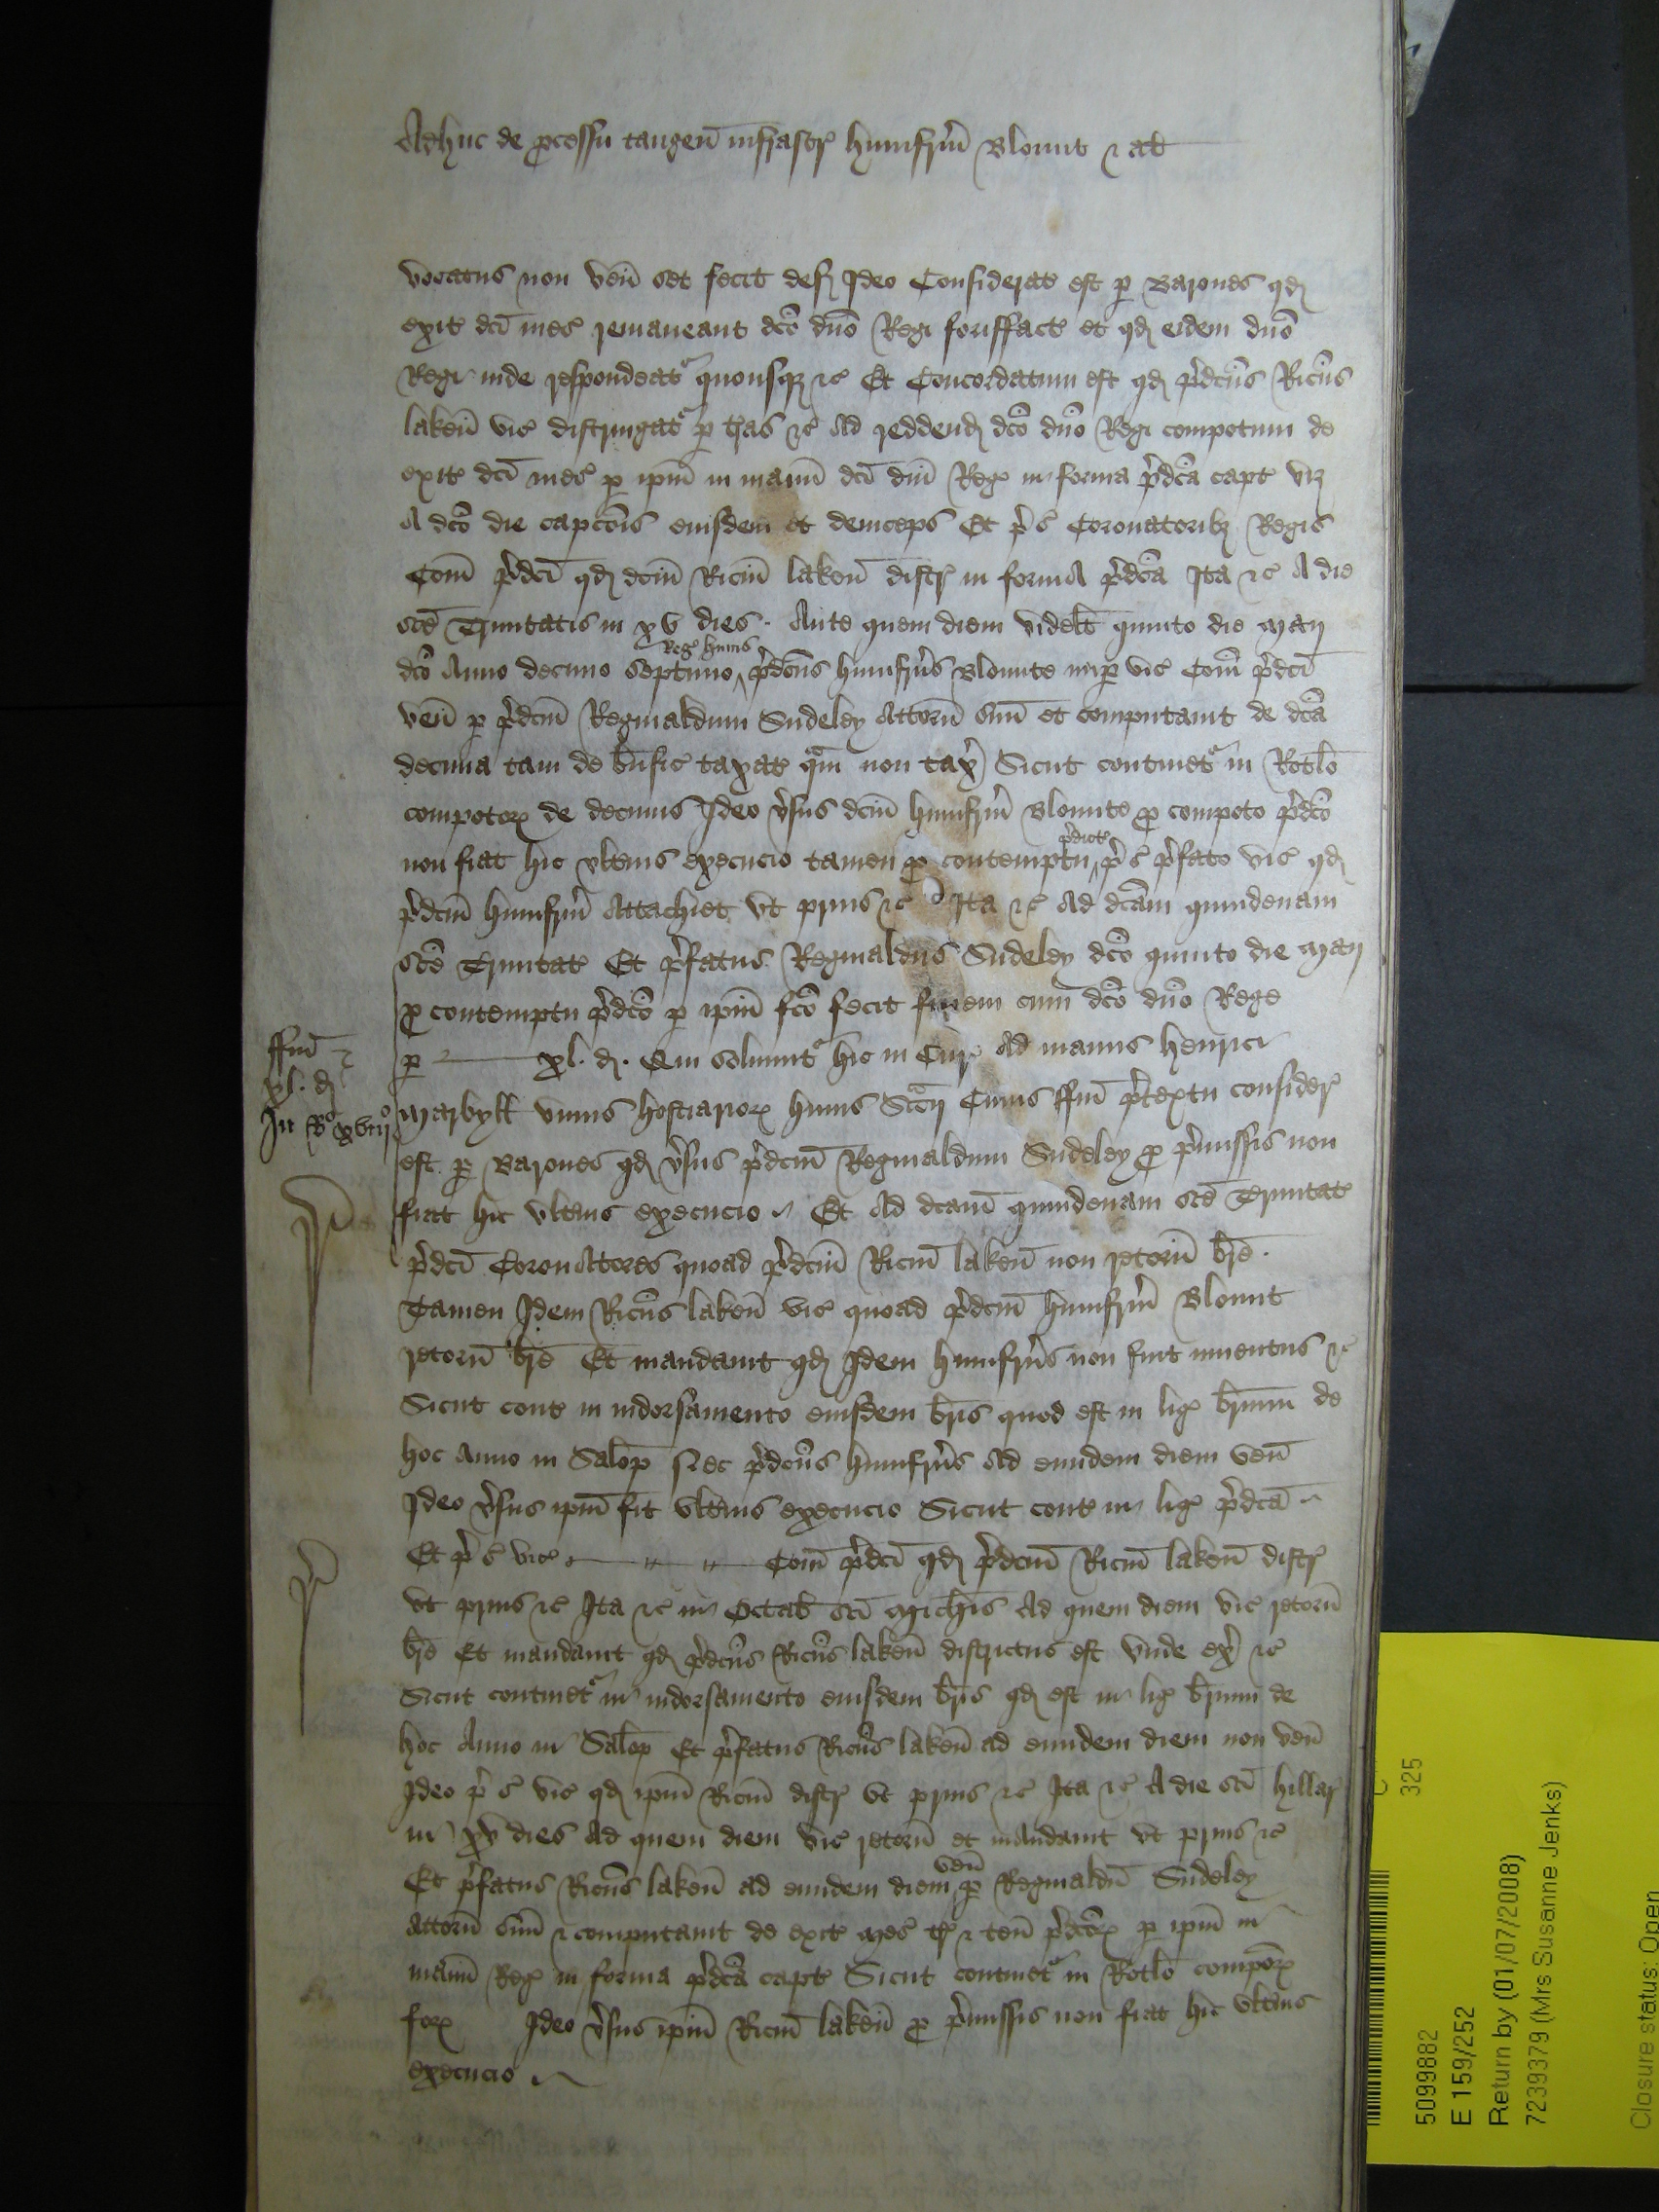 Adhuc de pcessu tangen̄ infrascr̄ Humfrm̄ Blount & al̄
vocatus non ven̄ set fecit def̄ Ideo Considerat̄ est p Barones qd
exit̄ dc̄i mes̄ remaneant dc̄o dn̄o Regi forisfact̄ et qd eidem dn̄o
Regi inde respondeat̄ quousq &c̄ Et Concordatum est qd p̄dcūs Ric̄us
Laken̄ vic̄ distringat̄ p tr̄as &c̄ Ad reddend dc̄o dn̄o Regi compotum de
exit̄ dc̄i mes̄ p ip̄m in manū dc̄i dn̄i Reḡ in forma p̄dc̄a capt̄ viz
A dc̄o die capc̄ōis eiusdem et deinceps Et p̄ c̄ Coronatorib Regis
Com̄ p̄dc̄i qd dc̄m̄ Ric̄m̄ Laken̄ distr̄ in forma p̄dc̄a Ita &c̄ A die
sc̄e Trinitatis in xv dies. Ante quem diem videlt̄ quinto die Maij
dc̄o Anno decimo septimo Reḡ huius p̄dcūs Humfrus̄ Blounte nup vic̄ Com̄ p̄dc̄i
ven̄ p p̄dc̄m̄ Reginaldum Sudeley Attorn̄ suū et computauit de dc̄a
decima tam de bn̄fic̄ taxat̄ q̄m non tax̄ Sicut continet̄ in Rotlō
compotor̄ de decimis Ideo v̄sus dc̄m̄ Humfrm̄ Blounte p compoto p̄dc̄o
non fiat hic vlteius̄ execucio tamen p contemptu p̄dict̄ p̄ c̄ p̄fato vic̄ qd
p̄dc̄m̄ Humfrm̄ Attachiet vt prius &c̄ Ita &c̄ Ad dc̄am quindenam
sc̄e Trinitat̄ Et p̄fatus Reginaldus Sudeley dc̄o quinto die Maij
p contemptu p̄dc̄o p ip̄m fc̄o fecit finem cum dc̄o dn̄o Rege
p xl. d. Qui soluunt̄ hic in Cur̄ Ad manus Henrici
ffin̄
xl. d
Marbyll̄ vnius hostiarior̄ huius Scc̄ij Cuius ffin̄ p̄textu consider̄
est p Barones qd v̄sus p̄dc̄m̄ Reginaldum Sudeley p p̄missis non
fiat hic vlteius̄ execucio Et Ad dc̄am quindenam sc̄e Trinitat̄
p̄dc̄i Coronatores quoad p̄dc̄m̄ Ric̄m̄ Laken̄ non retorn̄ br̄e.
Tamen Idem Ric̄us Laken̄ vic̄ quoad p̄dc̄m̄ Humfrm̄ Blount
retorn̄ br̄e Et mandauit qd Idem Humfrus̄ non fuit inuentus &c̄
Sicut cont̄ in indorsamento eiusdem br̄is quod est in liḡ br̄ium de
hoc Anno in Salop̄ Nec p̄dcūs Humfrus̄ Ad eundem diem ven̄
Ideo v̄sus ip̄m fit vlteius̄ execucio Sicut cont̄ in liḡ p̄dc̄a
Et p̄ c̄ vic̄ Com̄ p̄dc̄i qd p̄dc̄m̄ Ric̄m̄ Laken̄ distr̄
vt prius &c̄ Ita &c̄ in Octab̄ sc̄i Mich̄is Ad quem diem vic̄ retorn̄
br̄e Et mandauit qd p̄dcūs Ric̄us Laken̄ districtus est vnde ex̄ &c̄
Sicut continet̄ in indorsamento eiusdem br̄is qd est in liḡ br̄ium de
hoc Anno in Salop̄ Et p̄fatus Ric̄us Laken̄ ad eundem diem non ven̄
Ideo p̄ c̄ vic̄ qd ip̄m Ric̄m̄ distr̄ vt prius &c̄ Ita &c̄ A die sc̄i Hillar̄
in xv dies Ad quem diem vic̄ retorn̄ et mandauit vt prius &c̄
Et p̄fatus Ric̄us Laken̄ ad eundem diem ven̄ p Reginaldū Sudeley
Attorn̄ suū & computauit de exit̄ mes̄ tr̄ & ten̄ p̄dc̄or̄ p ip̄m in
manū Reḡ in forma p̄dc̄a capt̄ Sicut continet̄ in Rotlō compor̄
for̄ Ideo v̄sus ip̄m Ric̄m̄ Laken̄ p p̄missis non fiat hic vlteius̄
execucio
325
5099882
E 159/252
Return by (01/07/2008)
7239379 (Mrs Susanne Jenks)
Closure status: Open